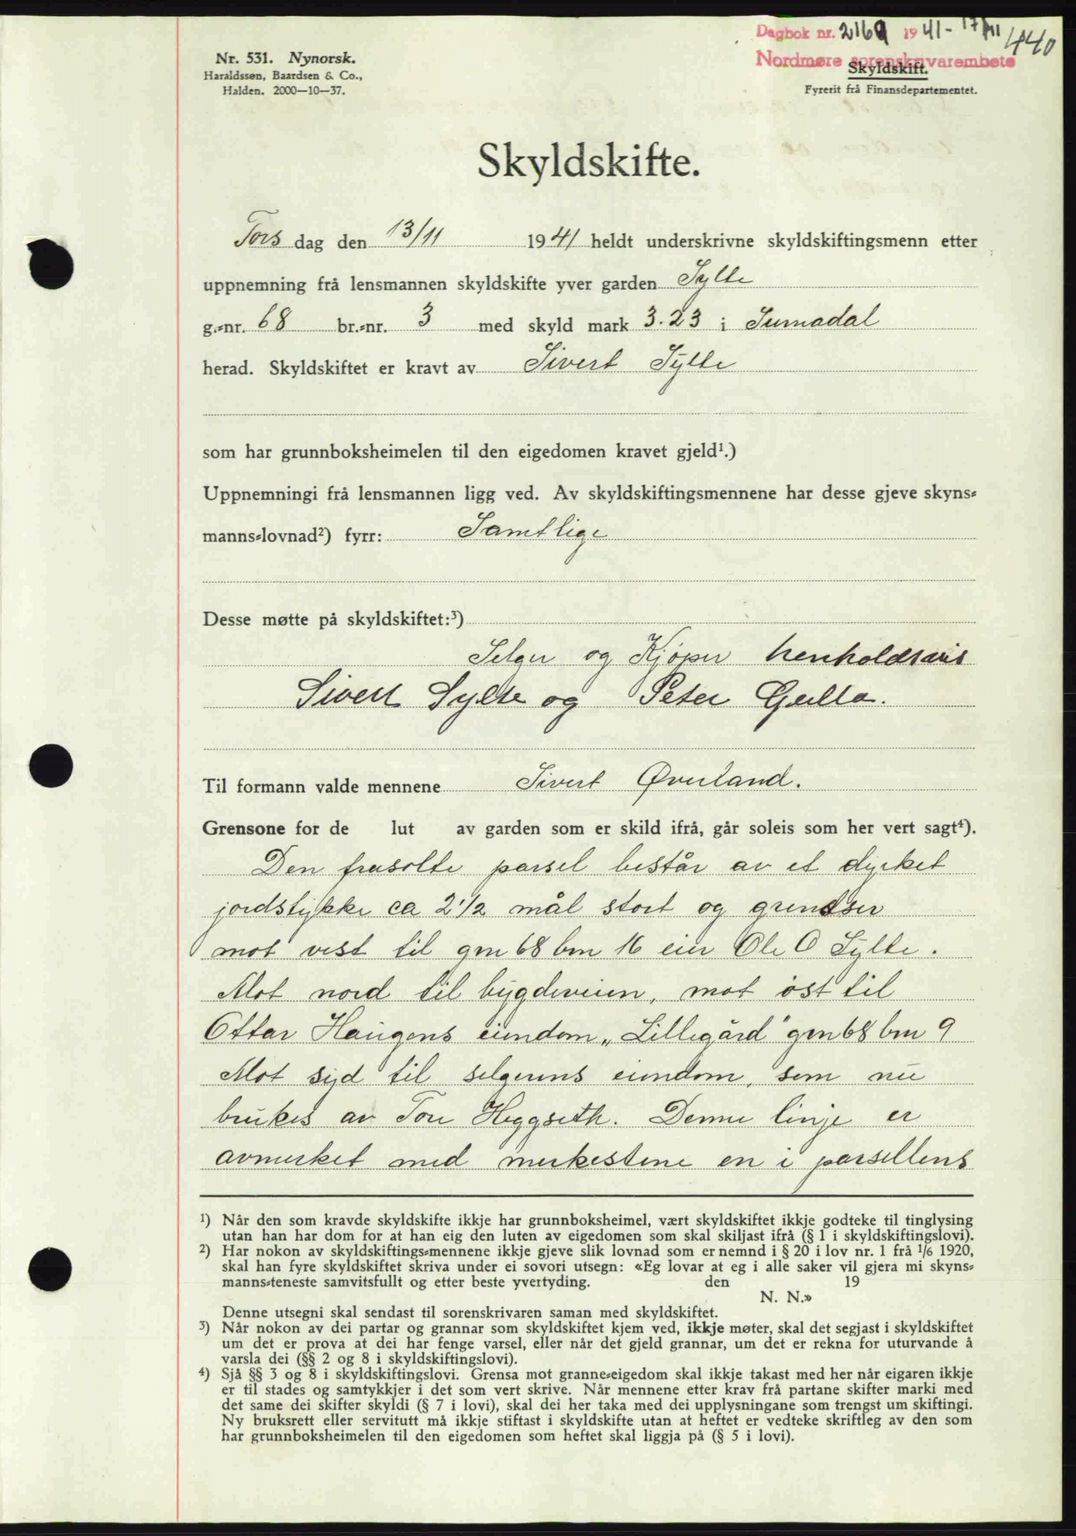 Dagbok nr. 2169 1941 - 17/11
440
Nordmøre sorenskrivarembete
Nr. 531. Nynorsk.
Haraldssøn, Baardsen & Co.,
Halden. 2000—10—37.
Skyldskift.
Fyrerit frå Finansdepartementet.
Skyldskifte.
Tors dag den 13/11 1941 heldt underskrivne skyldskiftingsmenn etter
uppnemning frå lensmannen skyldskifte yver garden Sylte
g.-nr. 68 br.-nr. 3 med skyld mark 3.23 i Surnadal
herad. Skyldskiftet er kravt av Sivert Sylte
som har grunnboksheimelen til den eigedomen kravet gjeld¹.)
Uppnemningi frå lensmannen ligg ved. Av skyldskiftingsmennene har desse gjeve skyns-
manns-lovnad²) fyrr: Samtlige
Desse møtte på skyldskiftet:³)
Selger og Kjøper henholdsvis
Sivert Sylte og Peter Gulla.
Til formann valde mennene Sivert Øverland.
Grensone for de lut av garden som er skild ifrå, går soleis som her vert sagt⁴).
Den frasolte parsel består av et dyrket
jordstykke ca 2 1/2 mål stort og grendser
mot vest til gnr 68 bnr 16 eier Ole O Sylte.
Mot nord til bygdeveien, mot øst til
Ottar Haugens eiendom „Lillegård" gnr 68 bnr 9
Mot syd til selgerens eiendom, som nu
brukes av Tore Heggseth. Denne linje er
avmerket med merkestene en i parsellens
¹) Når den som kravde skyldskifte ikkje har grunnboksheimel, vært skyldskiftet ikkje godteke til tinglysing
utan han har dom for at han eig den luten av eigedomen som skal skiljast ifrå (§ 1 i skyldskiftingslovi).
²) Har nokon av skyldskiftings-mennene ikkje gjeve slik lovnad som er nemnd i § 20 i lov nr. 1 frå 1/6 1920,
skal han fyre skyldskiftet skriva under ei sovori utsegn: «Eg lovar at eg i alle saker vil gjera mi skyns-
manns-teneste samvitsfullt og etter beste yvertyding. den 19
N. N.»
Denne utsegni skal sendast til sorenskrivaren saman med skyldskiftet.
³) Når nokon av dei partar og grannar som skyldskiftet kjem ved, ikkje møter, skal det segjast i skyldskiftet
um det er prova at dei har fenge varsel, eller når det gjeld grannar, um det er rekna for uturvande å
varsla dei (§§ 2 og 8 i skyldskiftingslovi).
⁴) Sjå §§ 3 og 8 i skyldskiftingslovi. Grensa mot granne-eigedom skal ikkje takast med her når eigaren ikkje
er til stades og samtykkjer i det som vert skrive. Når mennene etter krav frå partane skifter marki med
det same dei skifter skyldi (§ 7 i lovi), skal dei her taka med dei upplysningane som trengst um skiftingi.
Ny bruksrett eller servitutt må ikkje stiftast i skyldskifte utan at heftet er vedteke skriftleg av den som
har grunnboksheimelen til den eigedomen som heftet skal liggja på (§ 5 i lovi).